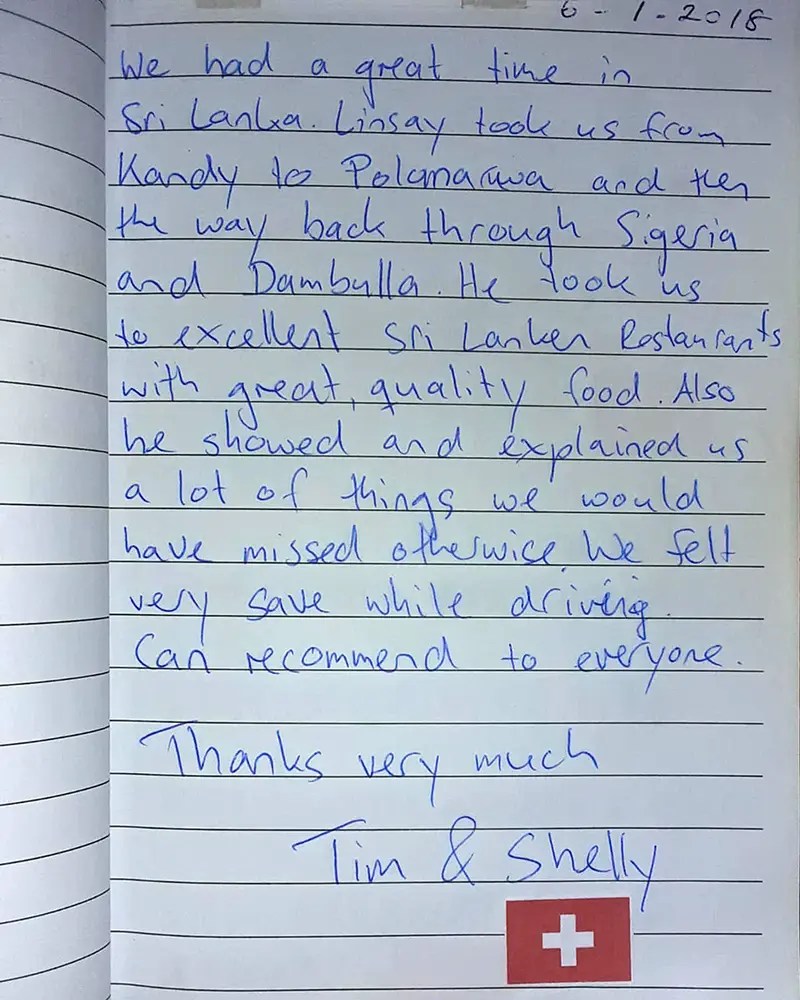 6-1-2018
We had a great time in
Sri Lanka. Linsay took us from
Kandy to Polanaruwa and then
the way back through Sigeria
and Dambulla. He took us
to excellent Sri Lanken Restaurants
with great, quality food. Also
he showed and explained us
a lot of things we would
have missed otherwice. We felt
very save while driving.
Can recommend to everyone.
Thanks very much
Tim & Shelly